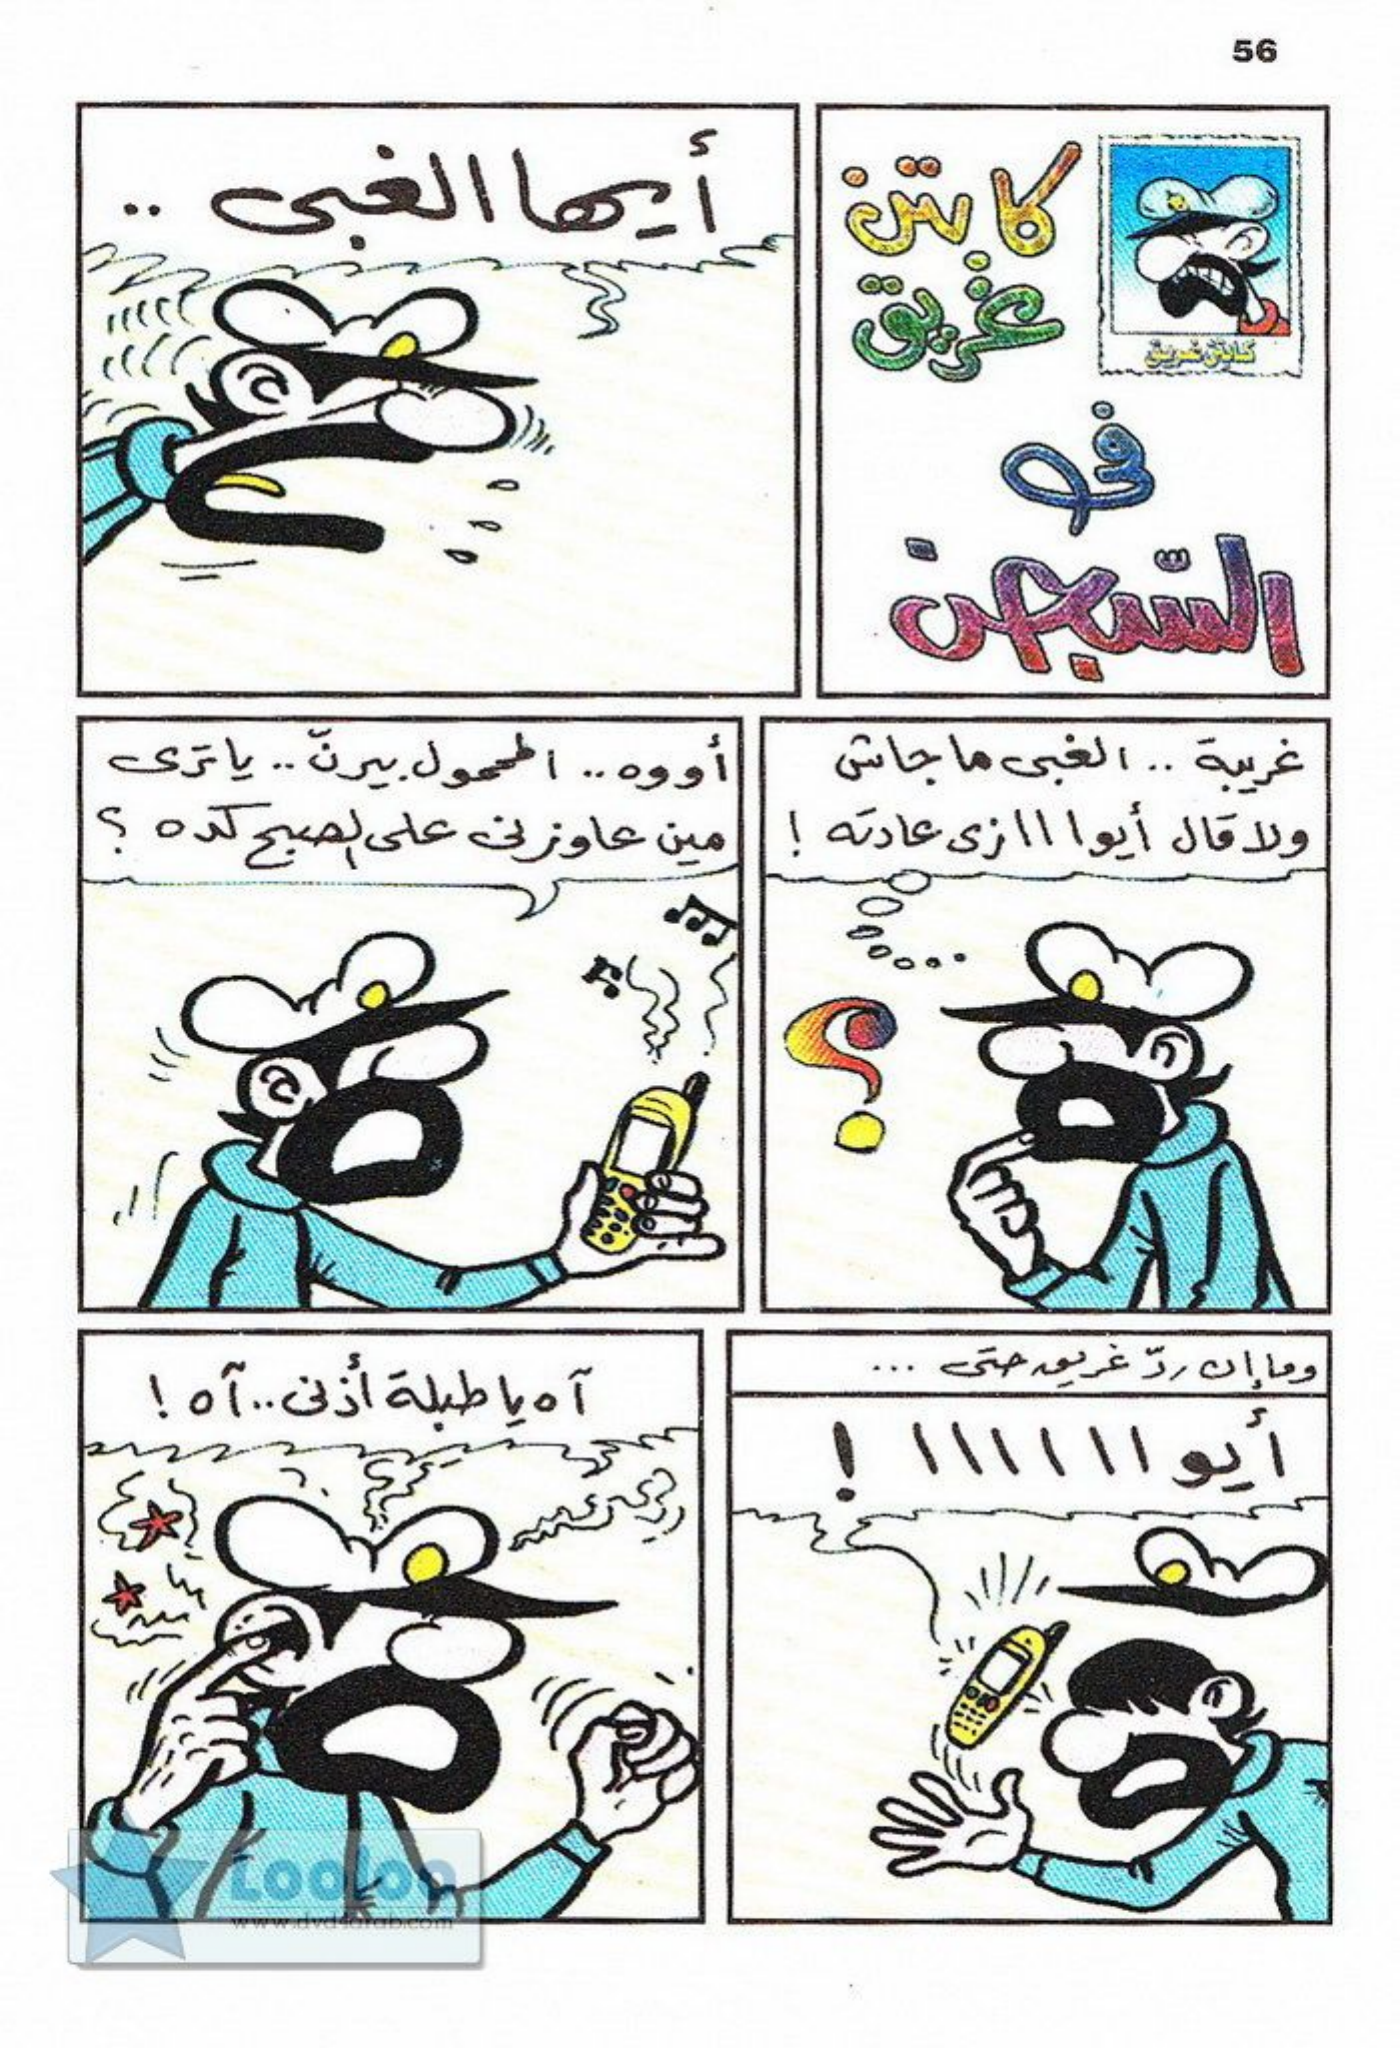 56
كابتن
غريق
كابتن غريق
فى
السّجن
أيها الغبى ..
غريبة .. الغبى ما جاش
ولا قال أيوااا زى عادته !
أووه .. المحمول بيرنّ .. يا ترى
مين عاوزنى على الصبح كده ؟
وما إن ردّ غريق حتى ...
أيواااااا !
آه يا طبلة أذنى .. آه !
Looloo
www.dvd4arab.com